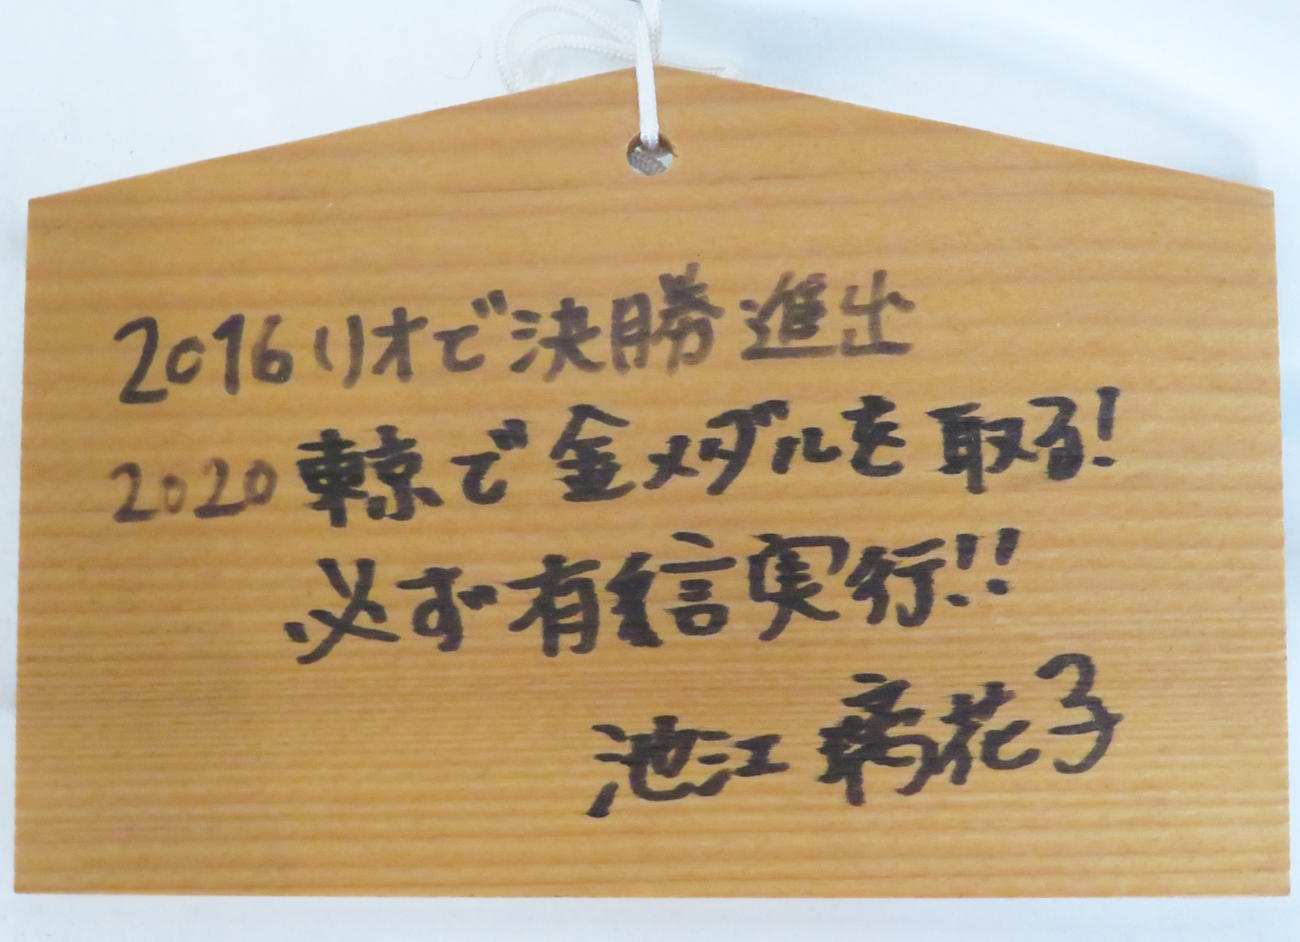 2016リオで決勝進出
2020東京で金メダルを取る!
必ず有言実行!!
池江 璃花子